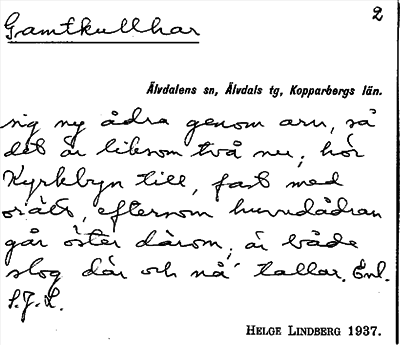 Gamtkullhar
2
Älvdalens sn, Älvdals tg, Kopparbergs län.
sig ny ådra genom arn, så
det är liksom två nu; hör
Kyrkbyn till, fast med
orätt, eftersom huvudådran
går öster därom; är både
slog där och nå' tallar. Enl.
S.J.L.
HELGE LINDBERG 1937.